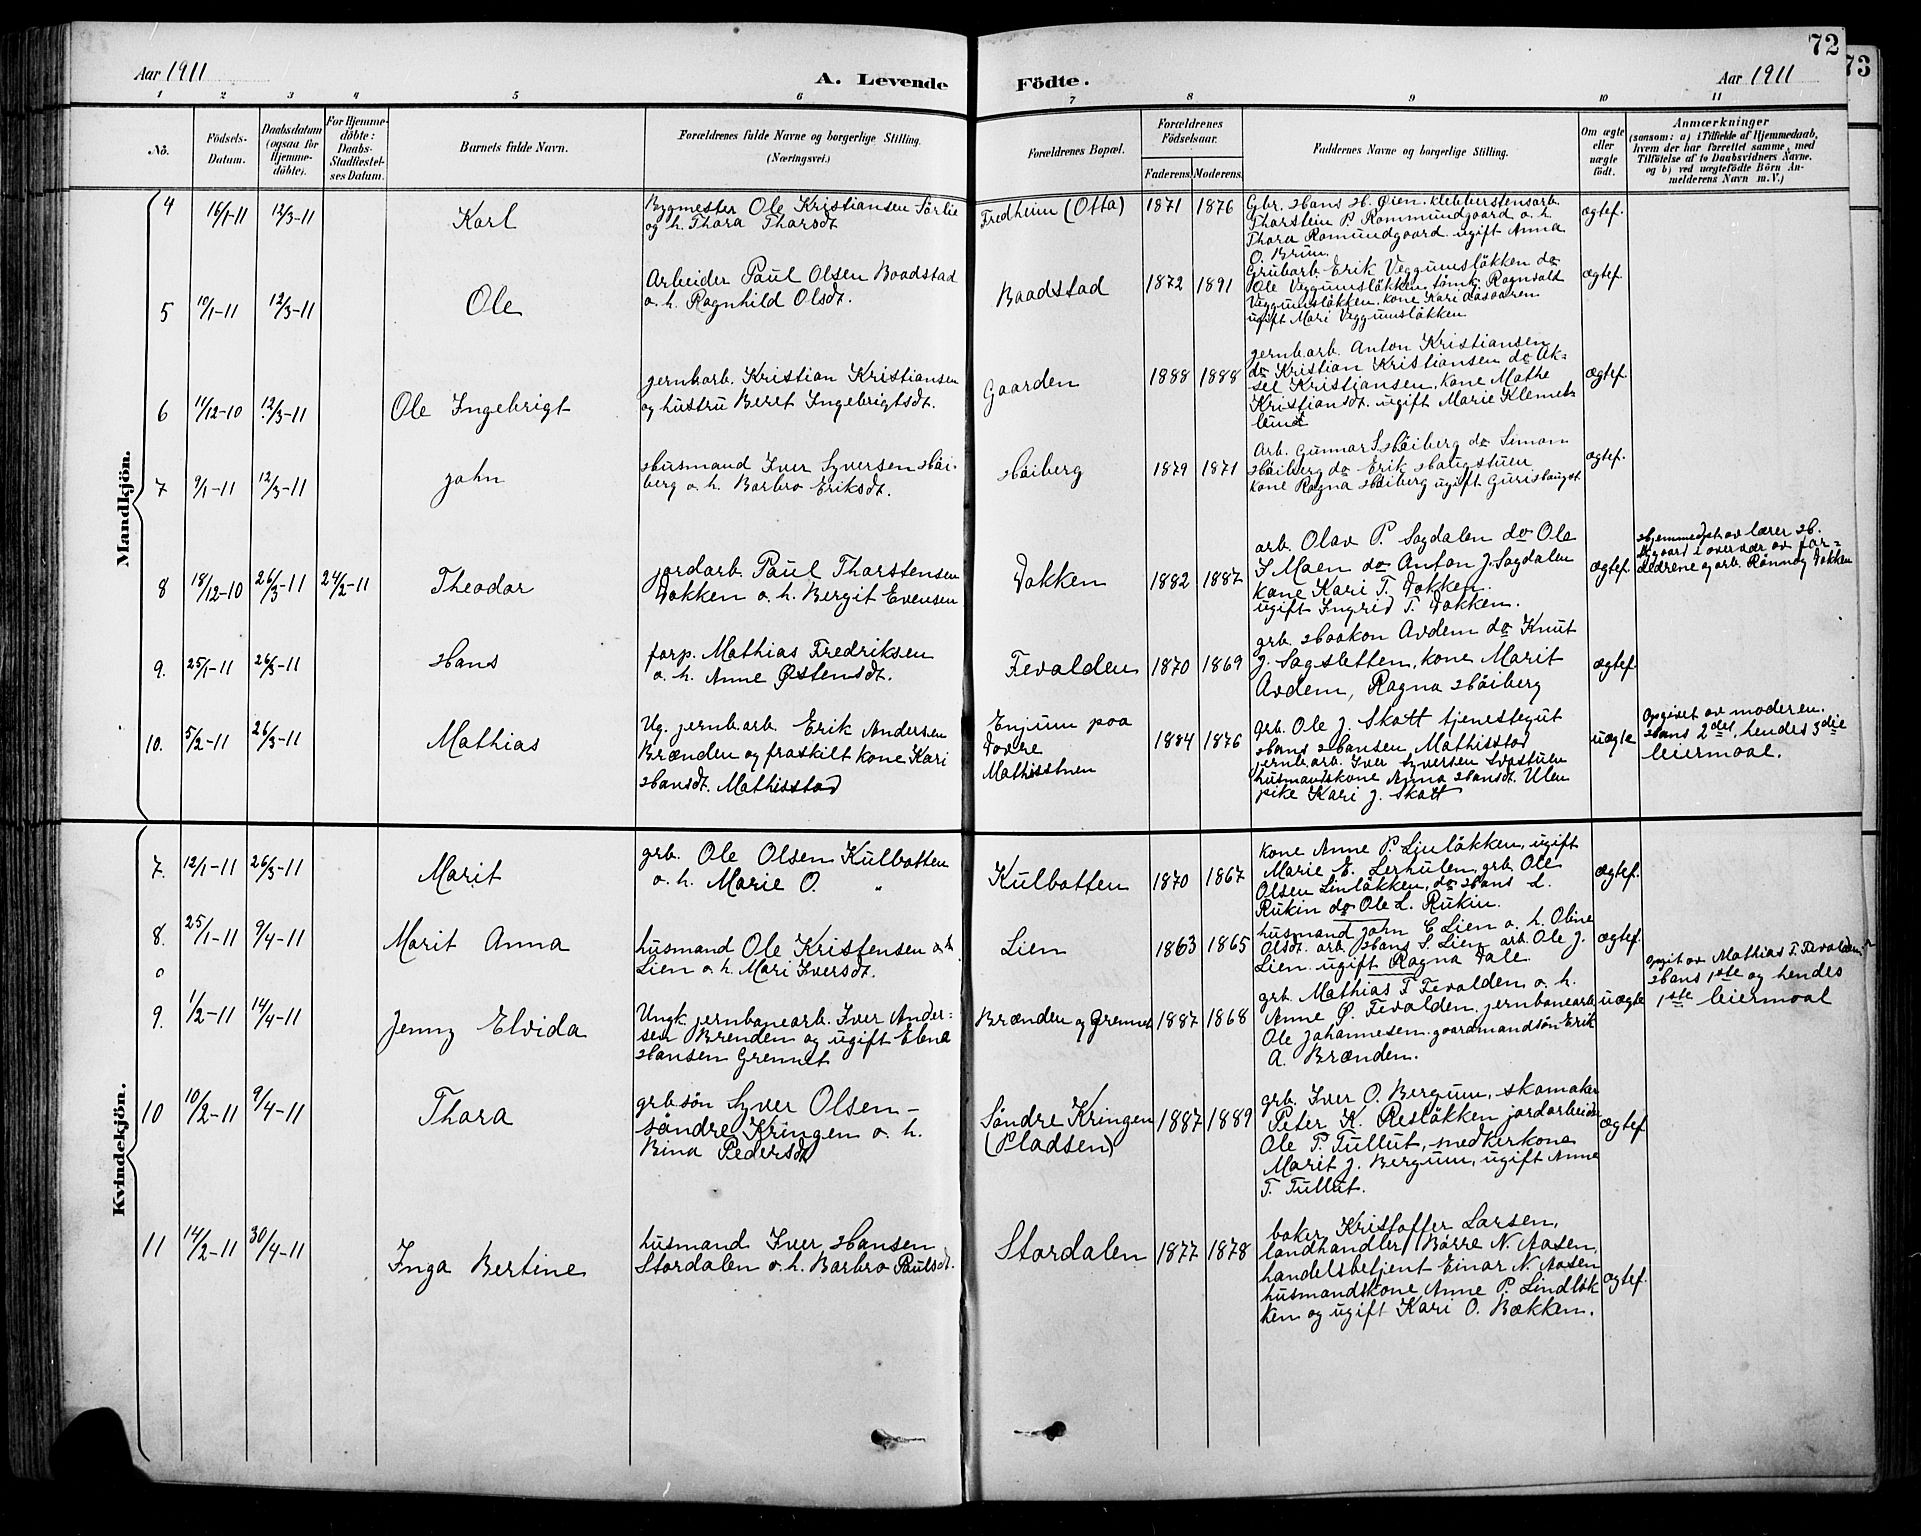 72
73
Aar 1911
A. Levende
Födte.
Aar 1911
1
2
3
4
5
6
7
8
9
10
11
No.
Födsels-
Datum.
Daabsdatum
(ogsaa for
Hjemme-
döbte).
For Hjemme-
döbte:
Daabs-
Stadfæstel-
ses Datum.
Barnets fulde Navn.
Forældrenes fulde Navne og borgerlige Stilling.
(Næringsvei.)
Forældrenes Bopæl.
Forældrenes
Födselsaar.
Faderens.
Moderens.
Faddernes Navne og borgerlige Stilling.
Om ægte
eller
uægte
födt.
Anmærkninger
(saasom: a) i Tilfælde af Hjemmedaab,
hvem der har forrettet samme, med
Tilföielse af to Daabsvidners Navne,
og b) ved uægtefödte Börn An-
melderens Navn m. V.)
Mandkjön.
4
16/1-11
12/3-11
Karl
Bygmester Ole Kristiansen Sörlie
og h. Thora Thorsdt
Fredheim (Otta)
1871
1876
Gbr. Hans H. Øien. klebberstensarb.
Thorstein P. Rommundgaard o. h.
Thora Romundgaard ugift Anna
O. Brun.
ægtef.
5
10/1-11
12/3-11
Ole
Arbeider Paul Olsen Baadstad
o. h. Ragnhild Olsdt.
Baadstad
1872
1891
Grubarb. Erik Veggumsløkken do
Ole Veggumsløkken, tömk. Ragnvald
Veggumsløkken. kone Kari Aasaaren
ugift Mari Veggumsløkken
ægtef.
6
11/12-10
12/3-11
Ole Ingebrigt
jernb.arb. Kristian Kristiansen
og hustru Beret Ingebrigtsdt.
Gaarden
1888
1888
jernb.arb. Anton Kristiansen
do Kristian Kristiansen do Ak-
sel Kristiansen, kone Mathe
Kristiansdt. ugift Marie Klemets
lund
ægtef.
7
9/1-11
12/3-11
John
Husmand Iver Syversen Höi-
berg o. h. Barbro Eriksdt.
Höiberg
1879
1871
Arb. Gunnar S Höiberg do Simon
Höiberg do Erik Haugstuen
kone Ragna Höiberg ugift Guri Haugst.
ægtef.
8
18/12-10
26/3-11
24/2-11
Theodor
jordarb. Paul Thorstensen
Dokken o. h. Bergit Evensen
Dokken
1882
1887
arb. Olav P. Sagdalen do Ole
S Maen do Anton J. Sagdalen
kone Kari T. Dokken.
ugift Ingrid T. Dokken.
ægtef.
Hjemmedøpt av lærer H.
i overvær av for-
ældrene og arb. Rønnog Dokken
9.
25/1-11
26/3-11
Hans
forp. Mathias Fredriksen
o. h. Anne Østensdt.
Fevolden
1870
1869
grb. Haakon Avdem do Knut
J. Sagsletten, kone Marit
Avdem, Ragna Höiberg
ægtef.
10.
5/2-11
26/3-11
Mathias
Ug. jernb.arb. Erik Andersen
Brænden og fraskilt kone Kari
Hansdt. Mathisstad
Enjum paa
Dovre
Mathisstuen
1884
1876
grb. Ole J. Skott tjenestegut
Hans Hansen, Mathisstad
jernb.arb. Iver Syversen
husmandskone Anna Hansdt. Ulen
pike Kari J. Skott
uægte
Opgivet av moderen.
Hans 2det, hendes 3die
leiermaal.
Kvindekjön.
7.
12/1-11
26/3-11
Marit
grb. Ole Olsen Kulbotten
o. h. Marie O. "
Kulbotten
1870
1867
kone Anne P. Linløkken, ugift
Marie E. Lerhulen, grb. Ole
Olsen Linløkken, do Hans L.
Rukin do Ole L. Rukin.
ægtef.
8.
25/1-11
9/4-11
Marit Anna
husmand Ole Kristensen
Lien o. h. Mari Iversdt.
Lien
1863
1865
husmand John E Lien o. h. Oline
Olsdt. arb. Hans S. Lien arb. Ole J.
Lien. ugift Ragna Dale.
ægtef.
9.
1/2-11
14/4-11
Jenny Elvida
Ungk. jernbanearb. Iver Ander-
sen Brenden og ugift Elena
Hansen Grennet
Brænden og Grennet
1887
1868
grb. Mathias F Fevolden o. h.
Anne Ø. Fevolden, jernbanearb.
Ole Johannesen. gaardmandsön Erik
A. Brænden.
uægte
opgit av Mathias F. Fevolden
Hans 1ste og hendes
1ste leiermaal
10
10/2-11
9/4-11
Thora
grb.sön Syver Olsen -
söndre Kringen o. h.
Bina Pedersdt
Söndre Kringen
(Pladsen)
1887
1889
grb. Iver O. Bergum, skomaker
Peter K. Resløkken jordarbeider
Ole P. Tullut, medkirkone
Marit J. Bergum, ugift Anne
T. Tullut.
ægtef.
11
14/2-11
30/4-11
Inga Bertine
husmand Iver Hansen
Stordalen o. h. Barbro Paulsdt.
Stordalen
1877
1878
baker Kristoffer Larsen,
landhandler Børre N. Aasen,
handelsbetjent Einar N. Aasen
husmandskone Anne P. Lindløk
ken og ugift Kari O. Bækken.
ægtef.